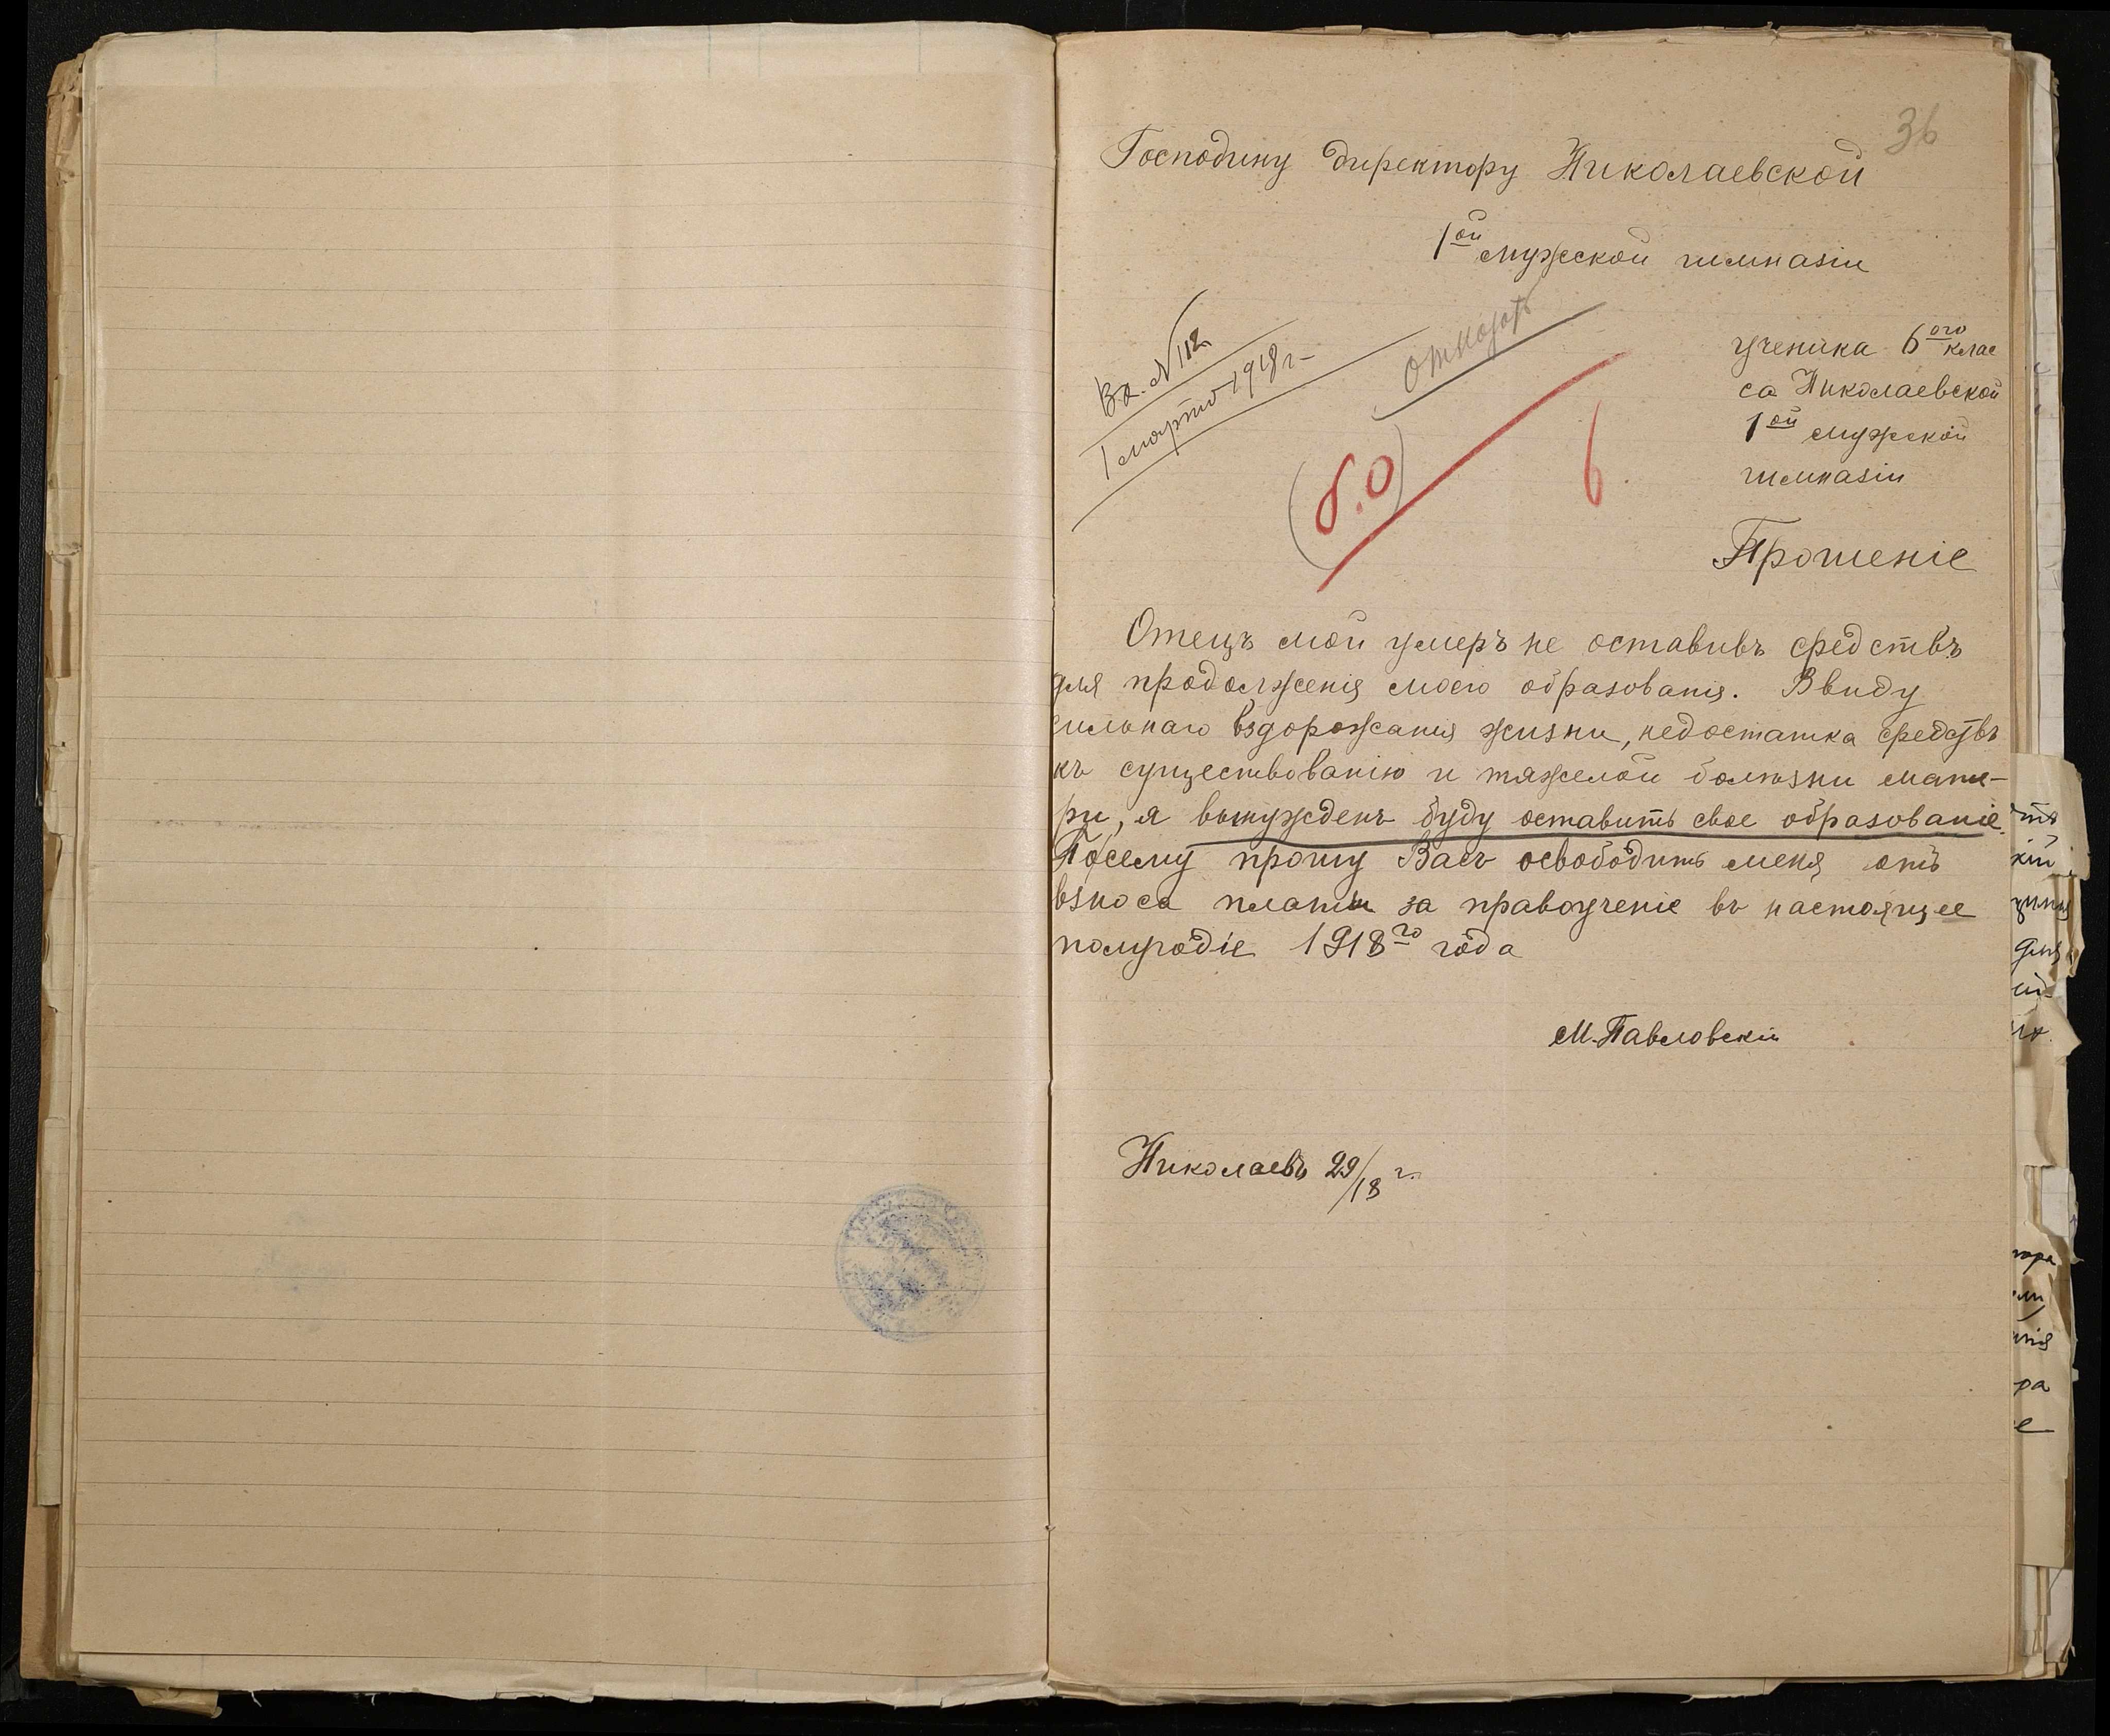 36
Господину директору Николаевской
1ой мужской гимназіи
Вх. №112
1 марта 1918 г.
отказать
(б.о)
6
ученика 6ого клас
са Николаевской
1ой мужской
гимназіи
Прошеніе
Отецъ мой умеръ не оставивъ средствъ
для продолженія моего образованія. Ввиду
сильнаго вздорожанія жизни, недостатка средствъ
къ существованію и тяжелой болѣзни мате-
ри, я вынужденъ буду оставить свое образованіе.
Посему прошу Васъ освободить меня отъ
взноса платы за правоученіе въ настоящее
полугодіе 1918го года
М. Павловскій
Николаевъ 29/18 г.